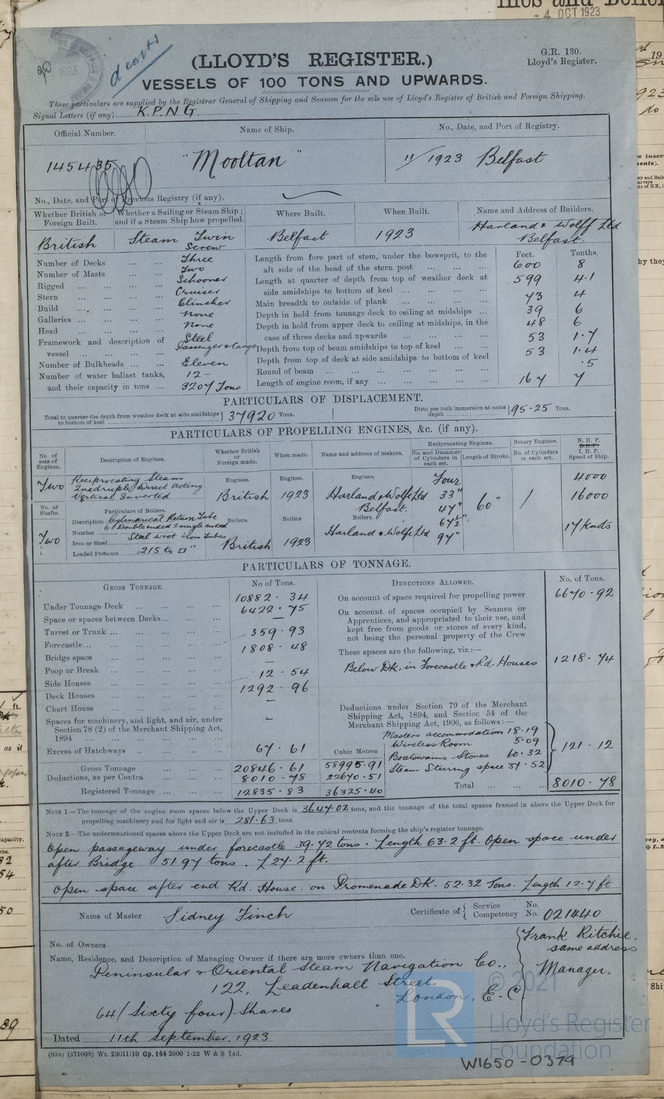 4 OCT 1923
(LLOYD'S REGISTER.)
G.R. 130.
Lloyd's Register.
VESSELS OF 100 TONS AND UPWARDS.
These particulars are supplied by the Registrar General of Shipping and Seamen for the sole use of Lloyd's Register of British and Foreign Shipping.
Signal Letters (if any) K.P.N.G
Official Number. Name of Ship. No., Date, and Port of Registry.
145435 "Mooltan" 11/1923 Belfast
No., Date, and Port of Previous Registry (if any).
Whether British or Foreign Built. Whether a Sailing or Steam Ship; and if a Steam Ship how propelled. Where Built. When Built. Name and Address of Builders.
British Steam Twin Screw Belfast 1923 Harland & Wolff Ltd Belfast
Feet. Tenths.
Number of Decks ... ... Three
Number of Masts ... ... Two
Rigged ... ... Schooner
Stern ... ... Cruiser
Build ... ... Clincher
Galleries ... ... None
Head ... ... None
Framework and description of vessel ... Steel Passenger & Cargo
Number of Bulkheads ... Eleven
Number of water ballast tanks, 12 -
and their capacity in tons ... 3207 Tons
Length from fore part of stem, under the bowsprit, to the aft side of the head of the stern post ... 600 8
Length at quarter of depth from top of weather deck at side amidships to bottom of keel ... 599 4.1
Main breadth to outside of plank ... 73 4
Depth in hold from tonnage deck to ceiling at midships ... 39 6
Depth in hold from upper deck to ceiling at midships, in the case of three decks and upwards ... 48 6
Depth from top of beam amidships to top of keel ... 53 1.7
Depth from top of deck at side amidships to bottom of keel 53 1.4
Round of beam ... .5
Length of engine room, if any ... 167 7
PARTICULARS OF DISPLACEMENT.
Total to quarter the depth from weather deck at side amidships to bottom of keel } 37920 Tons. Ditto per inch immersion at same depth } 95.25 Tons.
PARTICULARS OF PROPELLING ENGINES, &c. (if any).
No. of sets of Engines. Description of Engines. Whether British or Foreign made. When made. Name and address of makers. Reciprocating Engines. No. and Diameter of Cylinders in each set. Length of Stroke. Rotary Engines. No. of Cylinders in each set. N.H.P. I.H.P. Speed of Ship.
Two Reciprocating Steam Quadruple, Direct Acting Vertical Inverted
Engines. British Engines. 1923 Engines. Harland & Wolff Ltd Belfast.
Four 33" 47" 67½" 97" 60" 4000 16000 17 Knots
No. of Shafts. Two
Particulars of Boilers.
Description Cylindrical Return Tube
Number 6 Double ended 2 single ended
Iron or Steel Steel wrot iron Tubes
Loaded Pressure 215 lb □"
Boilers. British Boilers 1923 Boilers. Harland & Wolff Ltd
PARTICULARS OF TONNAGE.
GROSS TONNAGE. No. of Tons. DEDUCTIONS ALLOWED. No. of Tons.
Under Tonnage Deck ... 10882.34
Space or spaces between Decks ... 6422.75
Turret or Trunk ... -
Forecastle ... 359.93
Bridge space ... 1808.48
Poop or Break ... -
Side Houses ... 12.54
Deck Houses ... 1292.96
Chart House ... -
Spaces for machinery, and light, and air, under Section 78 (2) of the Merchant Shipping Act, 1894 ... -
Excess of Hatchways ... 67.61
Cubic Metres
Gross Tonnage 20846.61 58995.91
Deductions, as per Contra 8010.78 22670.51
Registered Tonnage 12835.83 36325.40
On account of space required for propelling power 6670.92
On account of spaces occupied by Seamen or Apprentices, and appropriated to their use, and kept free from goods or stores of every kind, not being the personal property of the Crew
These spaces are the following, viz.:—
Below Dk. in Forecastle & Rd. Houses 1218.74
Deductions under Section 79 of the Merchant Shipping Act, 1894, and Section 54 of the Merchant Shipping Act, 1906, as follows:—
Masters accommodation 18.19
Wireless Room 5.09
Boatswains Stores 60.32
Steam Steering space 37.52
121.12
Total ... 8010.78
NOTE 1.—The tonnage of the engine room spaces below the Upper Deck is 3647.02 tons, and the tonnage of the total spaces framed in above the Upper Deck for propelling machinery and for light and air is 281.63 tons.
NOTE 2.—The undermentioned spaces above the Upper Deck are not included in the cubical contents forming the ship's register tonnage.
Open passageway under forecastle 39.72 tons. Length 63.2 ft. Open space under
after Bridge 51.97 tons. L 27.2 ft.
Open space after end Rd. House on Promenade Dk. 52.32 Tons. Length 12.7 ft
Name of Master Sidney Finch Certificate of { Service No. Competency No. 021440
No. of Owners
Name, Residence, and Description of Managing Owner if there are more owners than one.
Peninsular & Oriental Steam Navigation Co.,
122, Leadenhall Street,
London, E.C
64 (Sixty four) Shares
Frank Ritchie.
same address
Manager.
Dated 11th September. 1923
(830) (371008) Wt. 23011/10 Gp. 144 2000 1-22 W & S Ltd.
© 2021
LR
Lloyd's Register
Foundation
W1650-0379